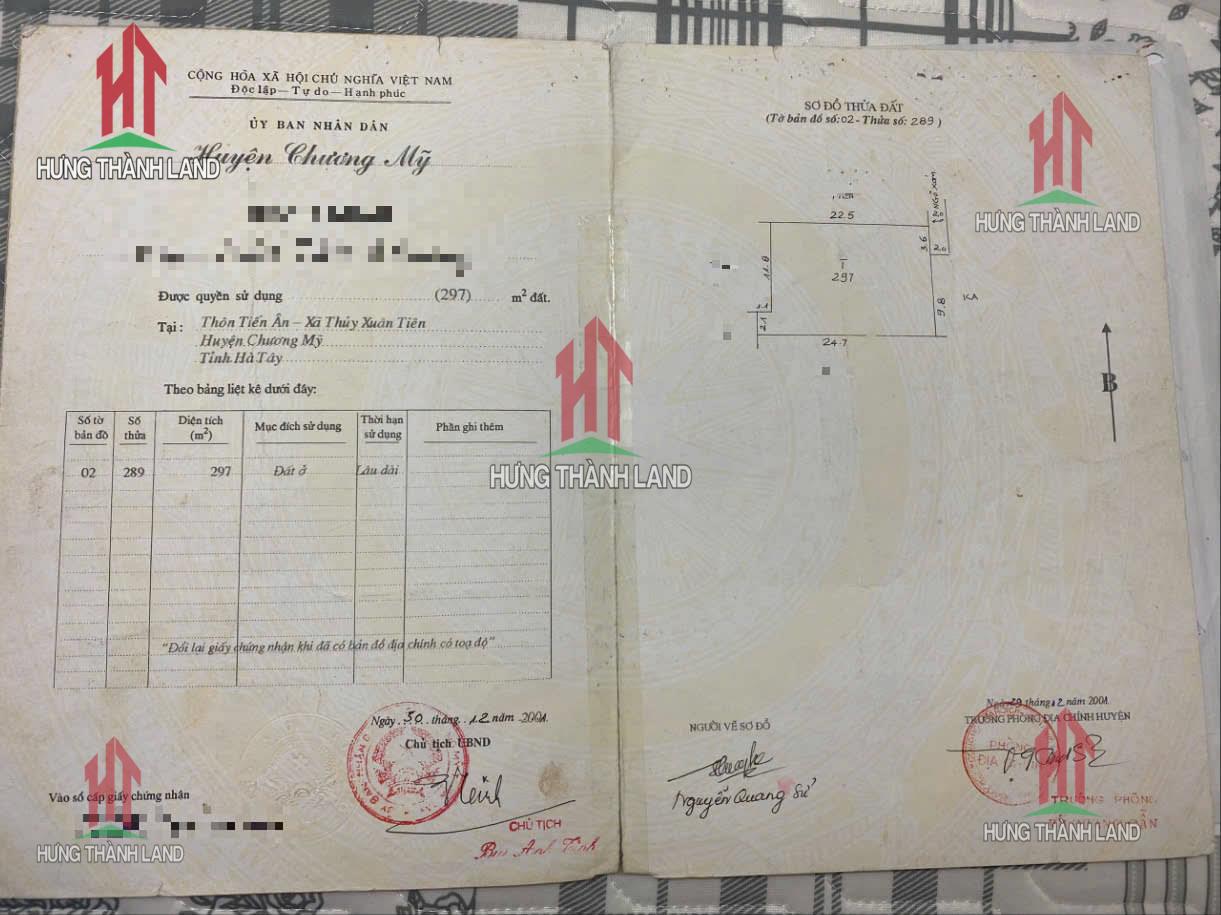 CỘNG HÒA XÃ HỘI CHỦ NGHĨA VIỆT NAM
Độc lập — Tự do — Hạnh phúc
ỦY BAN NHÂN DÂN
Huyện Chương Mỹ
HƯNG THÀNH LAND
Được quyền sử dụng (297) m² đất.
Tại : Thôn Tiến Ân – Xã Thủy Xuân Tiên
Huyện Chương Mỹ
Tỉnh Hà Tây
Theo bảng liệt kê dưới đây:
Số tờ bản đồ Số thửa Diện tích (m²) Mục đích sử dụng Thời hạn sử dụng Phần ghi thêm
02 289 297 Đất ở Lâu dài
"Đổi lại giấy chứng nhận khi đã có bản đồ địa chính có toạ độ"
Ngày 30 tháng 12 năm 2001
Chủ tịch UBND
CHỦ TỊCH
Vào sổ cấp giấy chứng nhận
HƯNG THÀNH LAND
HƯNG THÀNH LAND
SƠ ĐỒ THỬA ĐẤT
(Tờ bản đồ số: 02 - Thửa số: 289 )
HƯNG THÀNH LAND
NGÕ XÓM
22.5
3.6
2.0
11.8
T
297
9.8
KA
2.1
24.7
B
NGƯỜI VẼ SƠ ĐỒ
Nguyễn Quang Sử
tháng 12 năm 2001
TRƯỞNG PHÒNG ĐỊA CHÍNH HUYỆN
TRƯỞNG PHÒNG
HƯNG THÀNH LAND